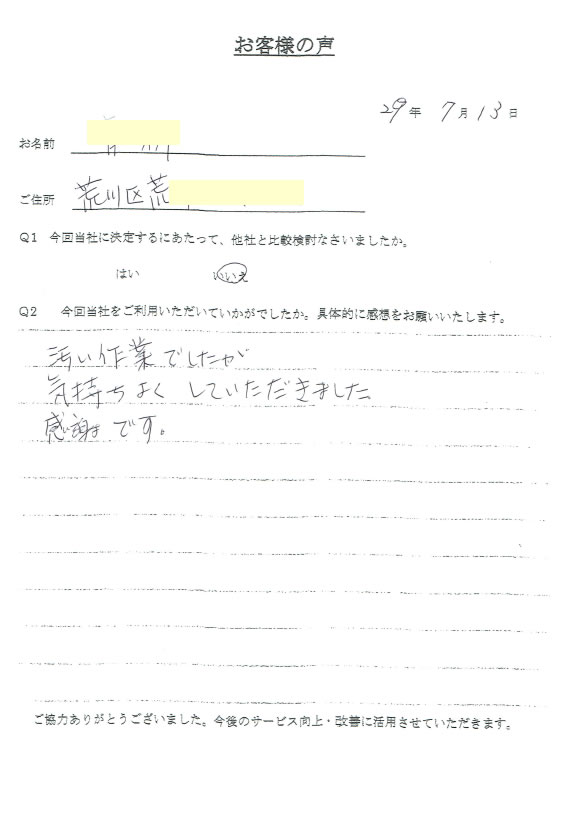 お客様の声
29年 7月13日
お名前
ご住所 荒川区荒
Q1 今回当社に決定するにあたって、他社と比較検討なさいましたか。
はい いいえ
Q2 今回当社をご利用いただいていかがでしたか。具体的に感想をお願いいたします。
汚い作業でしたが
気持ちよくしていただきました
感謝です。
ご協力ありがとうございました。今後のサービス向上・改善に活用させていただきます。